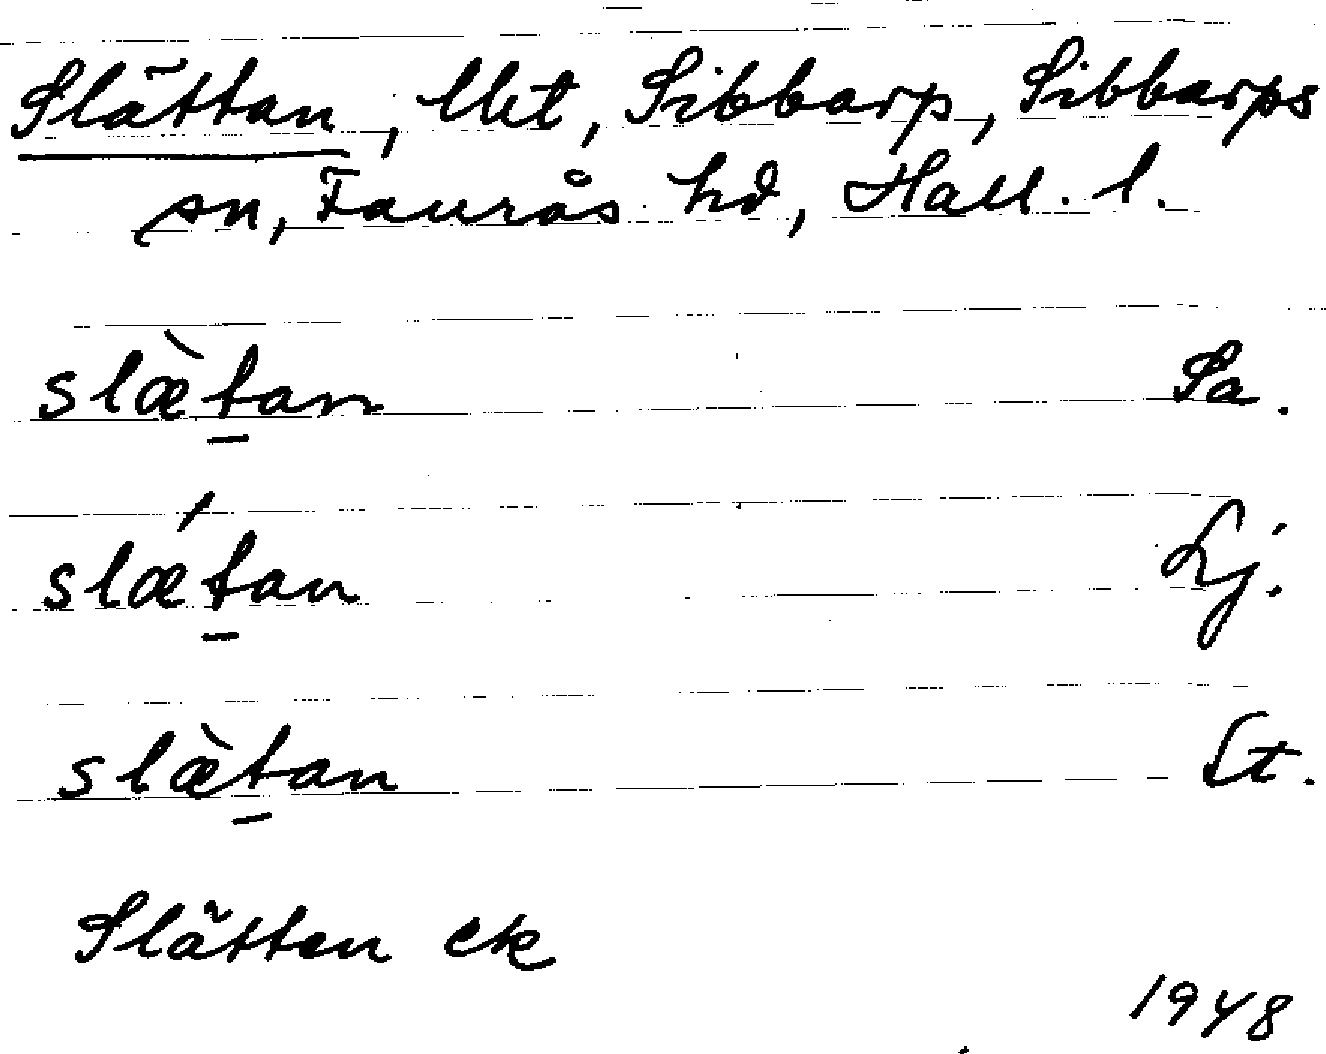 Slättan, Ukt, Sibbarp, Sibbarps
sn, Faurås hd, Hall. l.
slæ̀tan Sa.
slǽtan Lj.
slæ̀tan St.
Slätten ek
1948